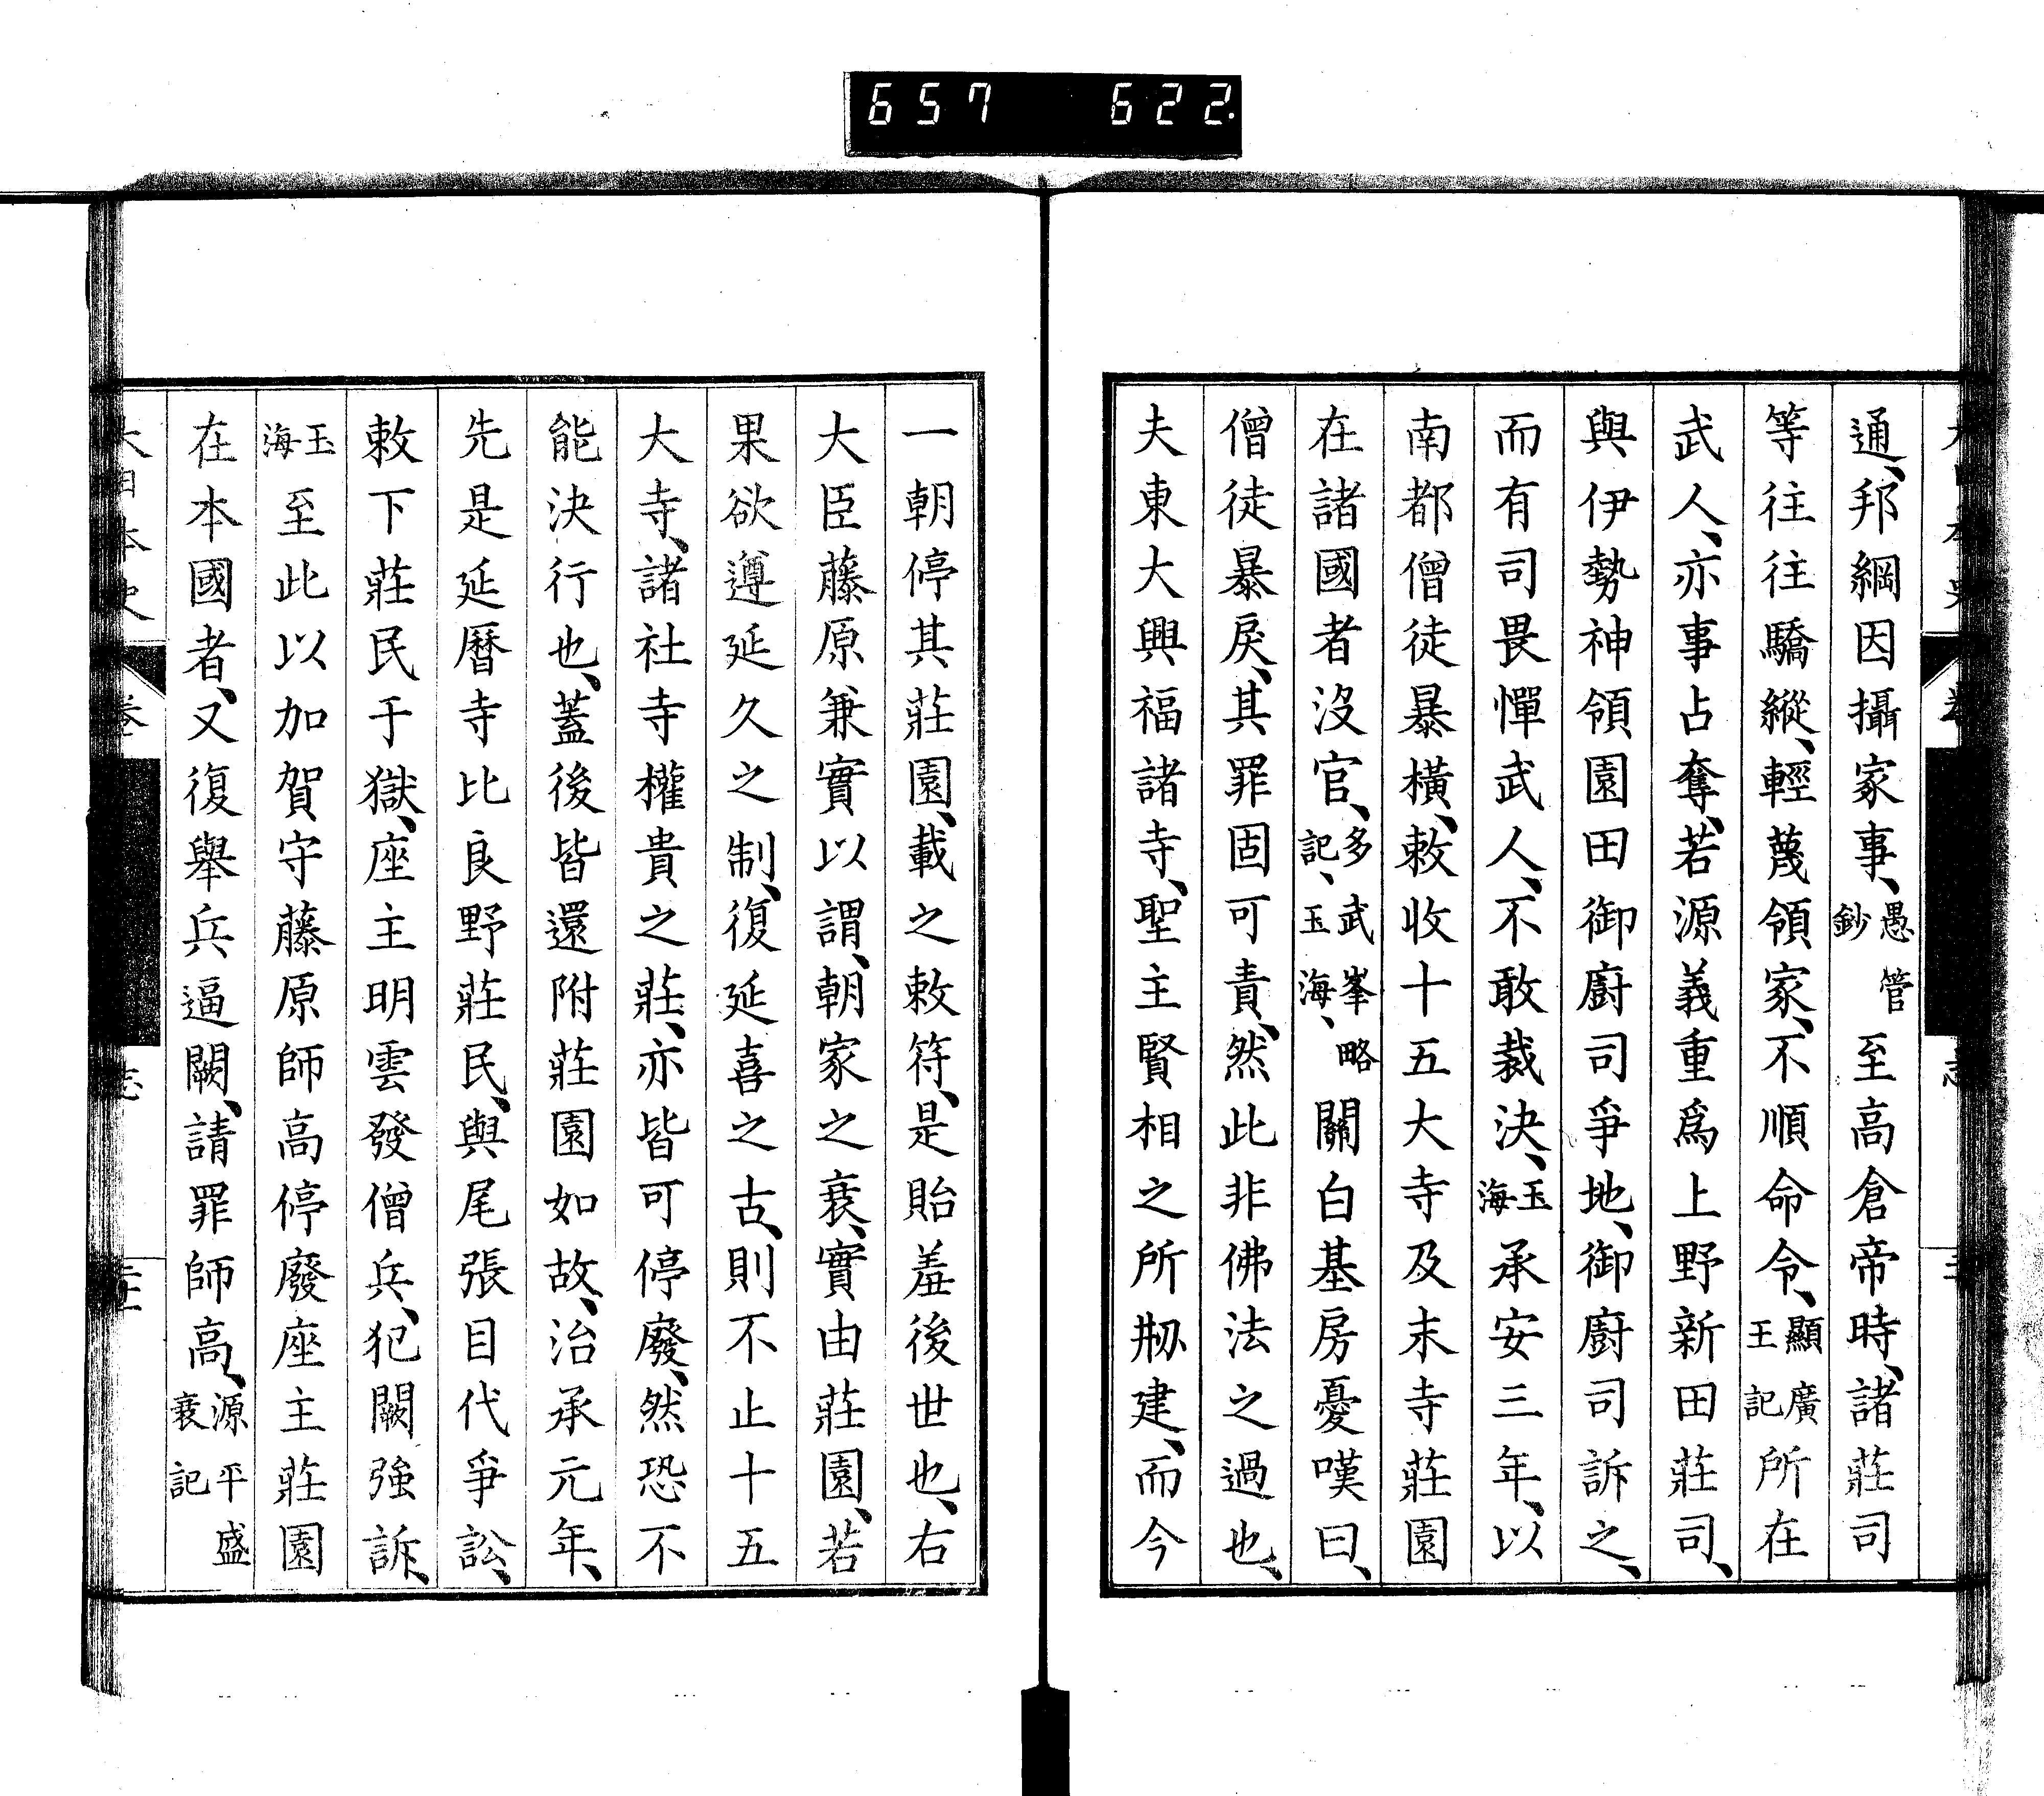 657 622.
通、邦綱因攝家事、愚管鈔至高倉帝時、諸莊司
等往往驕縱、輕蔑領家、不順命令、顯廣王記所在
武人、亦事占奪、若源義重爲上野新田莊司、
與伊勢神領園田御廚司爭地、御廚司訴之、
而有司畏憚武人、不敢裁決、玉海承安三年、以
南都僧徒暴橫、敕收十五大寺及末寺莊園
在諸國者沒官、多武峯略記、玉海、關白基房憂嘆曰、
僧徒暴戾、其罪固可責、然此非佛法之過也、
夫東大興福諸寺、聖主賢相之所剏建、而今
一朝停其莊園、載之敕符、是貽羞後世也、右
大臣藤原兼實以謂、朝家之衰、實由莊園、若
果欲遵延久之制、復延喜之古、則不止十五
大寺、諸社寺權貴之莊、亦皆可停廢、然恐不
能決行也、蓋後皆還附莊園如故、治承元年、
先是延曆寺比良野莊民、與尾張目代爭訟、
敕下莊民于獄、座主明雲發僧兵、犯闕強訴、
玉海至此以加賀守藤原師高停廢座主莊園
在本國者、又復舉兵逼闕、請罪師高、源平盛衰記
大日本史 卷 志